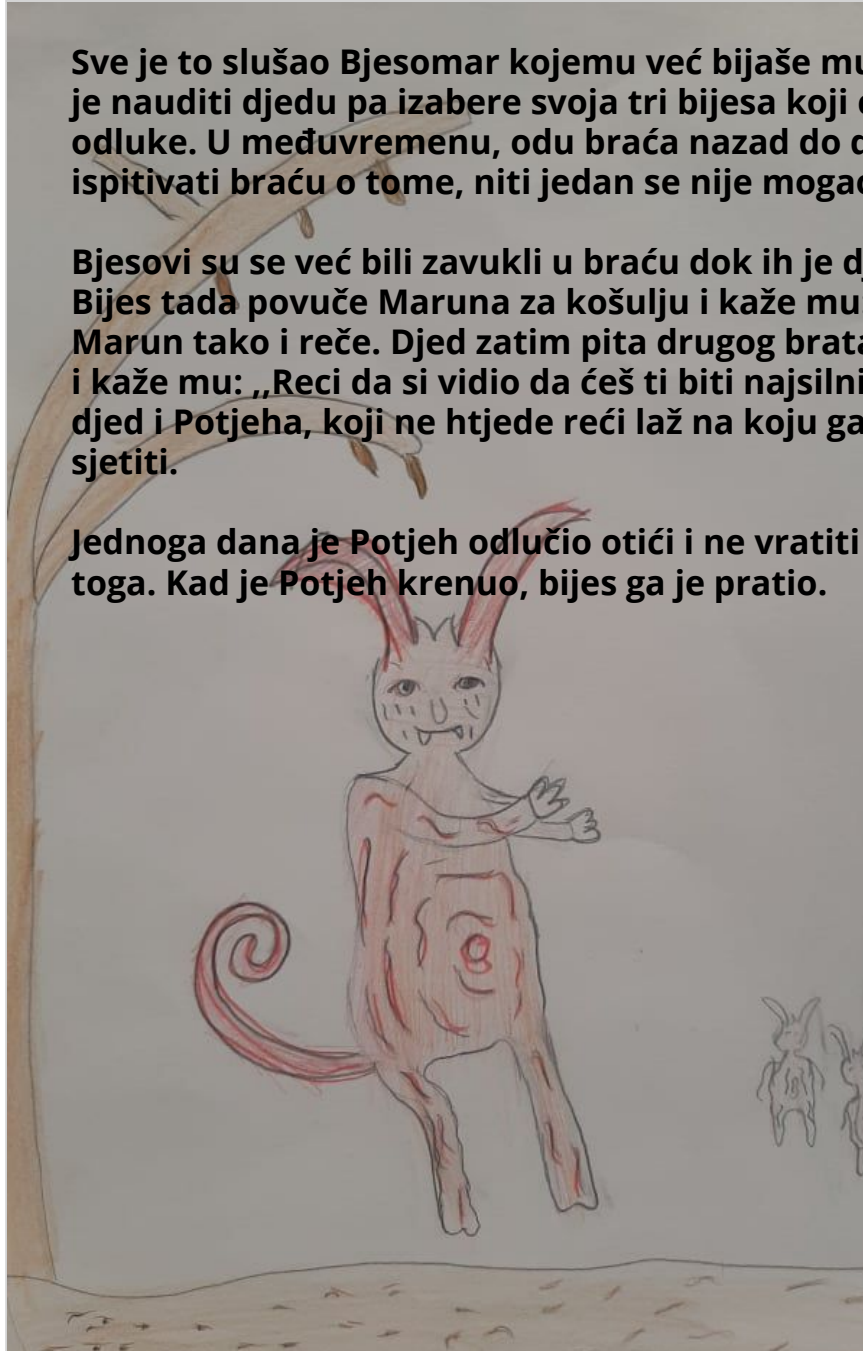 Sve je to slušao Bjesomar kojemu već bijaše
je nauditi djedu pa izabere svoja tri bijesa koji
odluke. U međuvremenu, odu braća nazad do
ispitivati braću o tome, niti jedan se nije
Bjesovi su se već bili zavukli u braću dok ih je
Bijes tada povuče Maruna za košulju i kaže mu:
Marun tako i reče. Djed zatim pita drugog
i kaže mu: ,,Reci da si vidio da ćeš ti biti
djed i Potjeha, koji ne htjede reći laž na koju ga
sjetiti.
Jednoga dana je Potjeh odlučio otići i ne vratiti
toga. Kad je Potjeh krenuo, bijes ga je pratio.